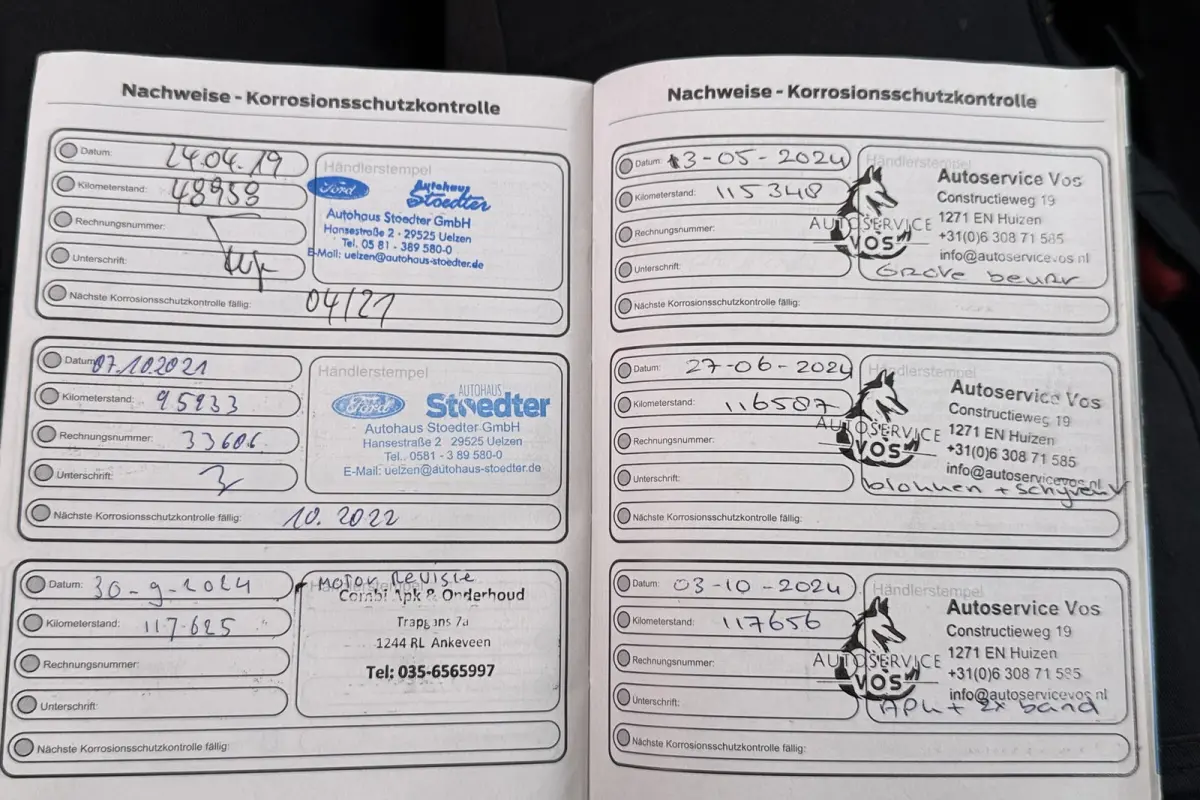 Nachweise - Korrosionsschutzkontrolle
Datum: 24.04.19
Kilometerstand: 48958
Rechnungsnummer:
Unterschrift:
Nächste Korrosionsschutzkontrolle fällig: 04/21
Händlerstempel
Ford Autohaus Stoedter
Autohaus Stoedter GmbH
Hansestraße 2 · 29525 Uelzen
Tel. 05 81 - 389 580-0
E-Mail: uelzen@autohaus-stoedter.de
Datum: 07.10.2021
Kilometerstand: 95933
Rechnungsnummer: 33606
Unterschrift:
Nächste Korrosionsschutzkontrolle fällig: 10.2022
Händlerstempel
Ford AUTOHAUS Stoedter
Autohaus Stoedter GmbH
Hansestraße 2 29525 Uelzen
Tel.. 0581 - 3 89 580-0
E-Mail: uelzen@autohaus-stoedter.de
Datum: 30-9-2024
Kilometerstand: 117625
Rechnungsnummer:
Unterschrift:
Nächste Korrosionsschutzkontrolle fällig:
Händlerstempel
Motor Revisie
Combi Apk & Onderhoud
Trapgans 7a
1244 RL Ankeveen
Tel: 035-6565997
Nachweise - Korrosionsschutzkontrolle
Datum: 13-05-2024
Kilometerstand: 115348
Rechnungsnummer:
Unterschrift:
Nächste Korrosionsschutzkontrolle fällig:
Händlerstempel
AUTOSERVICE
VOS
Autoservice Vos
Constructieweg 19
1271 EN Huizen
+31(0)6 308 71 585
info@autoservicevos.nl
Grote beurt
Datum: 27-06-2024
Kilometerstand: 116587
Rechnungsnummer:
Unterschrift:
Nächste Korrosionsschutzkontrolle fällig:
Händlerstempel
AUTOSERVICE
VOS
Autoservice Vos
Constructieweg 19
1271 EN Huizen
+31(0)6 308 71 585
info@autoservicevos.nl
blokken + schyven
Datum: 03-10-2024
Kilometerstand: 117656
Rechnungsnummer:
Unterschrift:
Nächste Korrosionsschutzkontrolle fällig:
Händlerstempel
AUTOSERVICE
VOS
Autoservice Vos
Constructieweg 19
1271 EN Huizen
+31(0)6 308 71 585
info@autoservicevos.nl
APK + 2x band